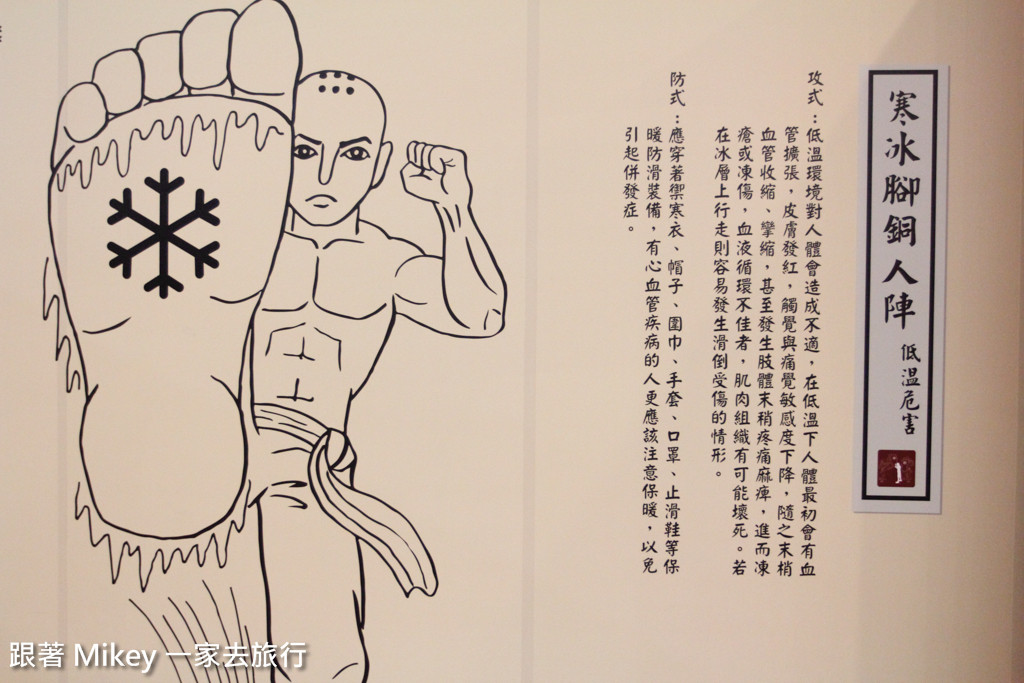 寒冰腳銅人陣
低溫危害
攻式：低溫環境對人體會造成不適，在低溫下人體最初會有血
管擴張，皮膚發紅，觸覺與痛覺敏感度下降，隨之末梢
血管收縮、攣縮，甚至發生肢體末稍疼痛麻痺，進而凍
瘡或凍傷，血液循環不佳者，肌肉組織有可能壞死。若
在冰層上行走則容易發生滑倒受傷的情形。
防式：應穿著禦寒衣、帽子、圍巾、手套、口罩、止滑鞋等保
暖防滑裝備，有心血管疾病的人更應該注意保暖，以免
引起併發症。
跟著 Mikey 一家去旅行